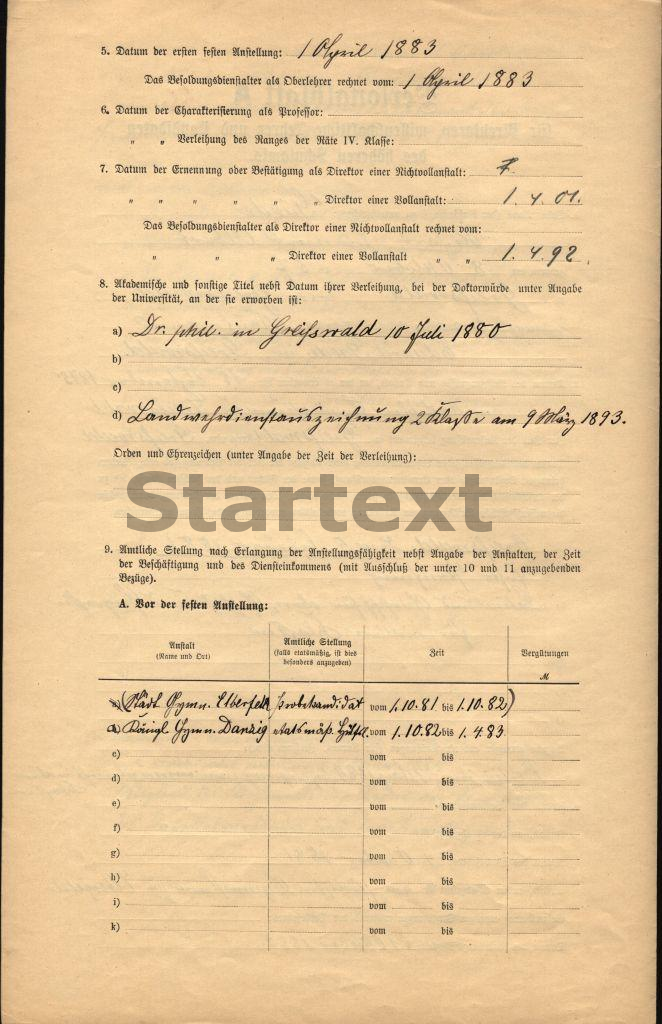 5. Datum der ersten festen Anstellung: 1 April 1883
Das Besoldungsdienstalter als Oberlehrer rechnet vom: 1 April 1883
6. Datum der Charakterisierung als Professor:
„ „ Verleihung des Ranges der Räte IV. Klasse:
7. Datum der Ernennung oder Bestätigung als Direktor einer Nichtvollanstalt:
„ „ „ „ „ „ Direktor einer Vollanstalt: 1. 4. 01.
Das Besoldungsdienstalter als Direktor einer Nichtvollanstalt rechnet vom:
„ „ „ Direktor einer Vollanstalt „ „ 1. 4. 92.
8. Akademische und sonstige Titel nebst Datum ihrer Verleihung, bei der Doktorwürde unter Angabe
der Universität, an der sie erworben ist:
a) Dr. phil. in Greifswald 10 Juli 1880
b)
c)
d) Landwehrdienstauszeichnung 2 Klasse am 9 März 1893.
Orden und Ehrenzeichen (unter Angabe der Zeit der Verleihung):
Startext
9. Amtliche Stellung nach Erlangung der Anstellungsfähigkeit nebst Angabe der Anstalten, der Zeit
der Beschäftigung und des Diensteinkommens (mit Ausschluß der unter 10 und 11 anzugebenden
Bezüge).
A. Vor der festen Anstellung:
Anstalt (Name und Ort) Amtliche Stellung (falls etatsmäßig, ist dies besonders anzugeben) Zeit Vergütungen M
a) (Städt Gymn. Elberfeld Probekandidat vom 1.10.81 bis 1.10.82)
Königl. Gymn. Danzig etatsmäß. Hülfsl. vom 1.10.82 bis 1.4.83
c) vom bis
d) vom bis
e) vom bis
f) vom bis
g) vom bis
h) vom bis
i) vom bis
k) vom bis